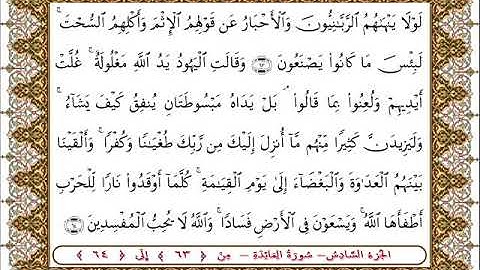 لَوْلَا يَنْهَىٰهُمُ ٱلرَّبَّٰنِيُّونَ وَٱلْأَحْبَارُ عَن قَوْلِهِمُ ٱلْإِثْمَ وَأَكْلِهِمُ ٱلسُّحْتَ ۚ
لَبِئْسَ مَا كَانُوا۟ يَصْنَعُونَ ٦٣ وَقَالَتِ ٱلْيَهُودُ يَدُ ٱللَّهِ مَغْلُولَةٌ ۚ غُلَّتْ
أَيْدِيهِمْ وَلُعِنُوا۟ بِمَا قَالُوا۟ ۘ بَلْ يَدَاهُ مَبْسُوطَتَانِ يُنفِقُ كَيْفَ يَشَآءُ ۚ
وَلَيَزِيدَنَّ كَثِيرًا مِّنْهُم مَّآ أُنزِلَ إِلَيْكَ مِن رَّبِّكَ طُغْيَٰنًا وَكُفْرًا ۚ وَأَلْقَيْنَا
بَيْنَهُمُ ٱلْعَدَٰوَةَ وَٱلْبَغْضَآءَ إِلَىٰ يَوْمِ ٱلْقِيَٰمَةِ ۚ كُلَّمَآ أَوْقَدُوا۟ نَارًا لِّلْحَرْبِ
أَطْفَأَهَا ٱللَّهُ ۚ وَيَسْعَوْنَ فِى ٱلْأَرْضِ فَسَادًا ۚ وَٱللَّهُ لَا يُحِبُّ ٱلْمُفْسِدِينَ ٦٤
الجزء السادس - سورة المائدة - من ﴿ ٦٣ ﴾ إلى ﴿ ٦٤ ﴾